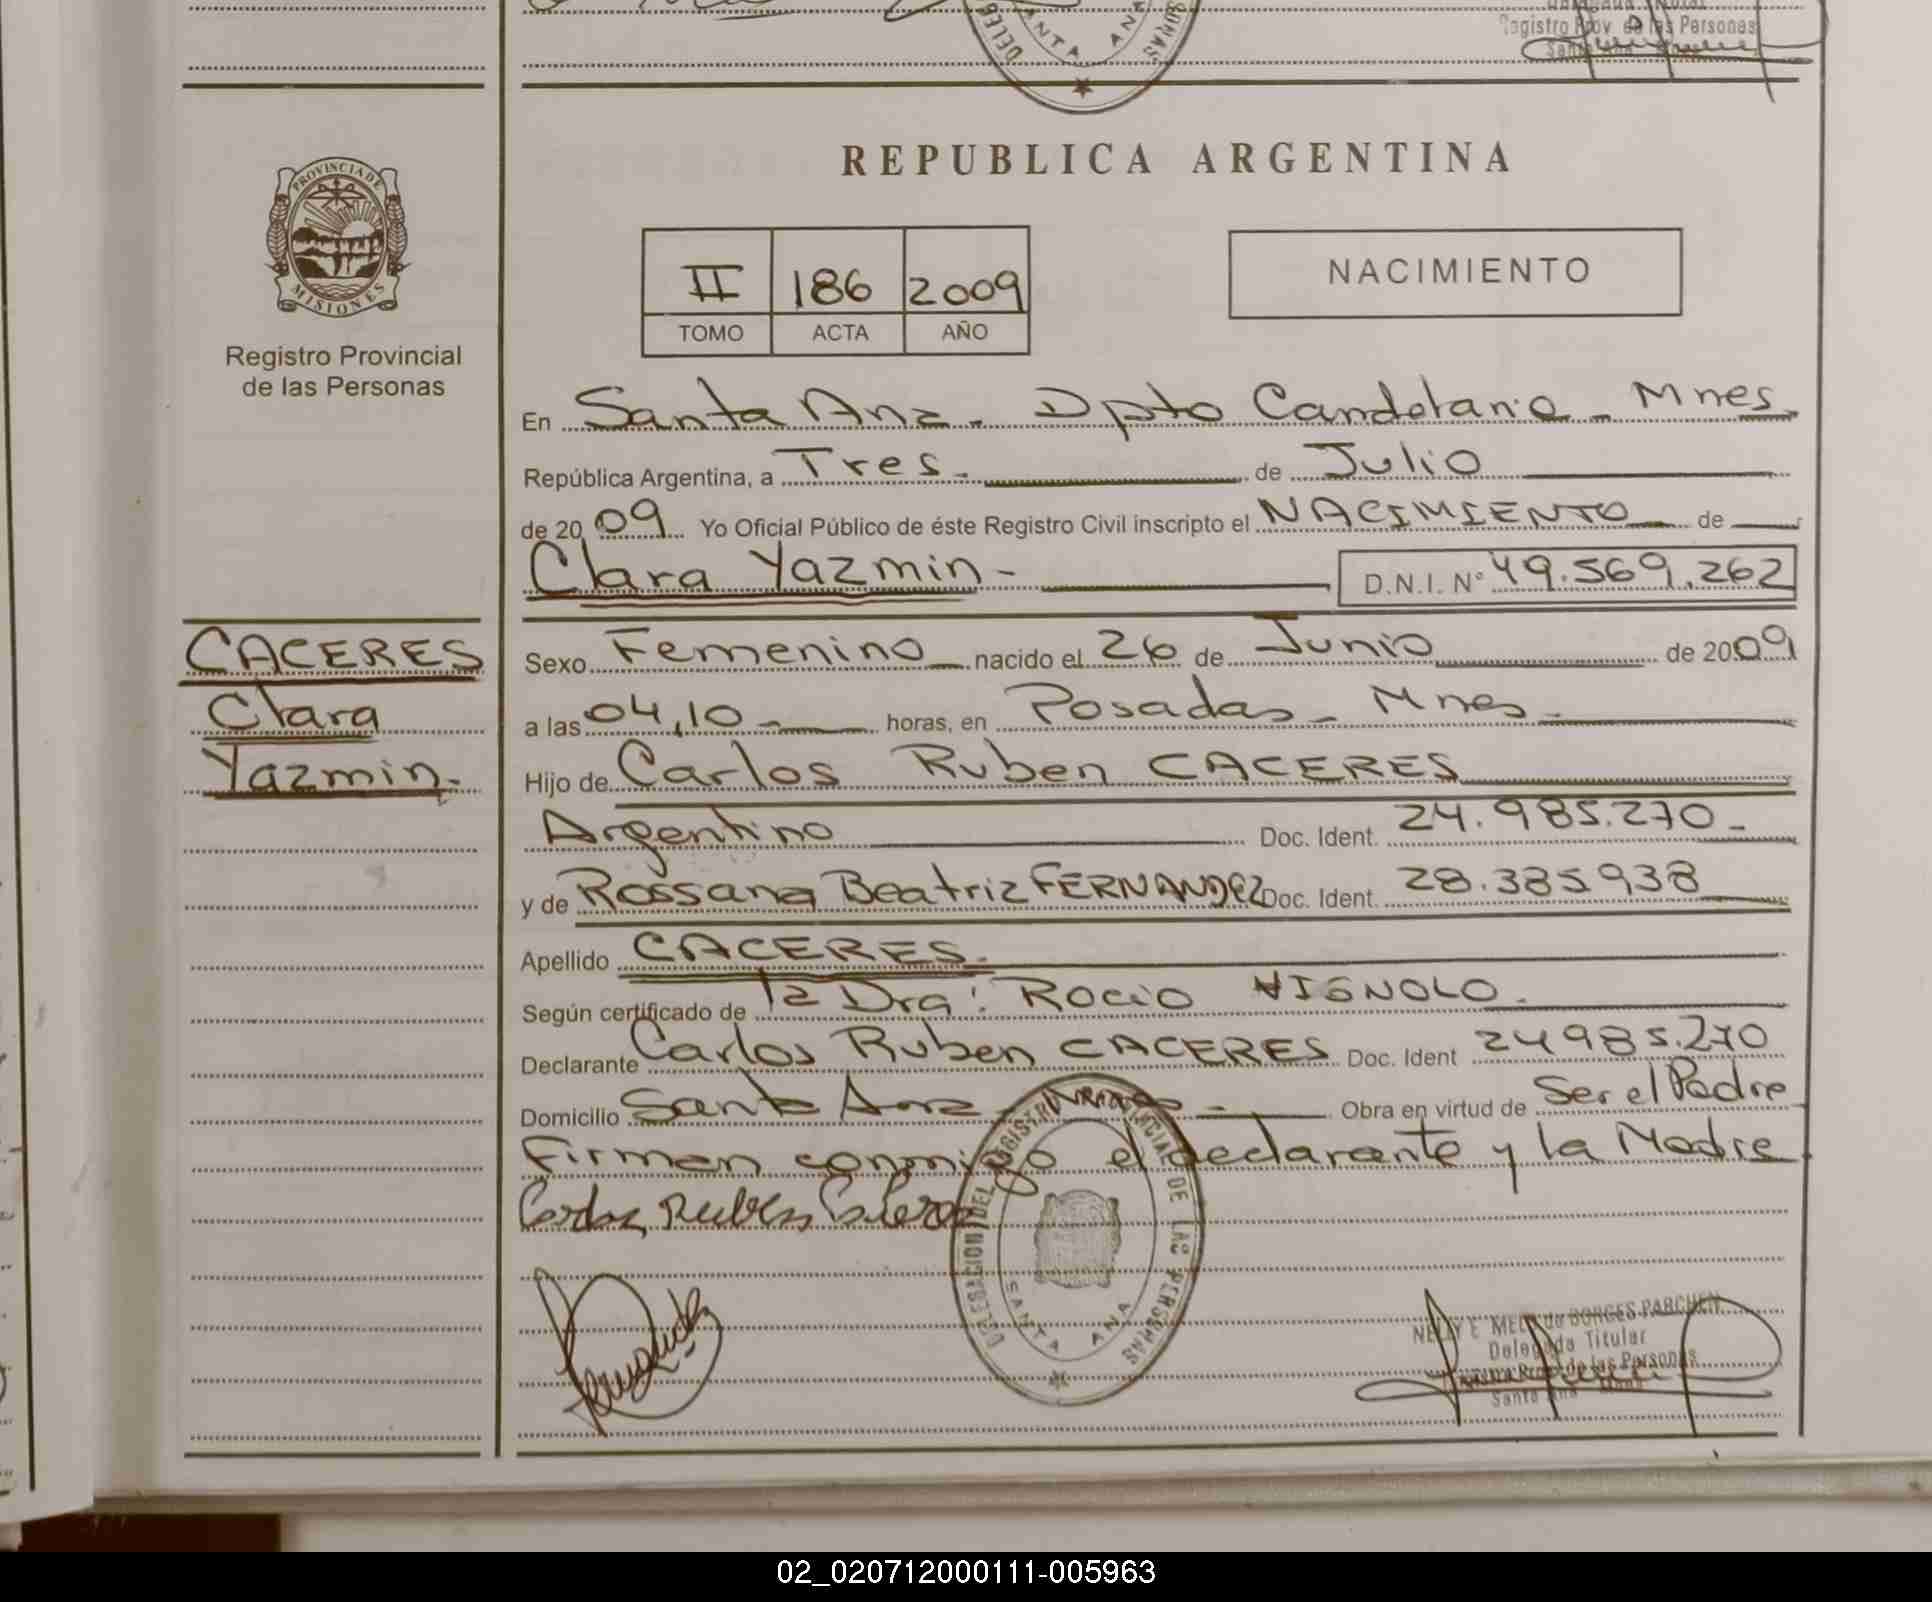 DELEG
SANTA ANA
SONAS
Registro Prov. de las Personas
PROVINCIA DE
MISIONES
Registro Provincial
de las Personas
REPUBLICA ARGENTINA
II 186 2009
TOMO ACTA AÑO
NACIMIENTO
En Santa Ana - Dpto Candelaria - Mnes.
República Argentina, a Tres. de Julio
de 2009 Yo Oficial Público de éste Registro Civil inscripto el NACIMIENTO de
Clara Yazmin - D.N.I. N° 49.569.262
CACERES
Clara
Yazmin.
Sexo Femenino nacido el 26 de Junio de 2009
a las 04,10 - horas, en Posadas - Mnes -
Hijo de Carlos Ruben CACERES
Argentino Doc. Ident. 24.985.270 -
y de Rossana Beatriz FERNANDEZ Doc. Ident. 28.385938
Apellido CACERES.
Según certificado de la Dra: Rocio VIGNOLO.
Declarante Carlos Ruben CACERES Doc. Ident 24985.270
Domicilio Santa Ana - Mnes - Obra en virtud de Ser el Padre
Firman conmigo el declarante y la Madre
Carlos Ruben Caceres
DELEGACION DEL REGISTRO PROVINCIAL DE LAS PERSONAS
SANTA ANA
Fernandez
NELLY E. MELO de BORGES PARCHEN
Delegada Titular
Registro Prov. de las Personas
Santa Ana Mnes
02_020712000111-005963